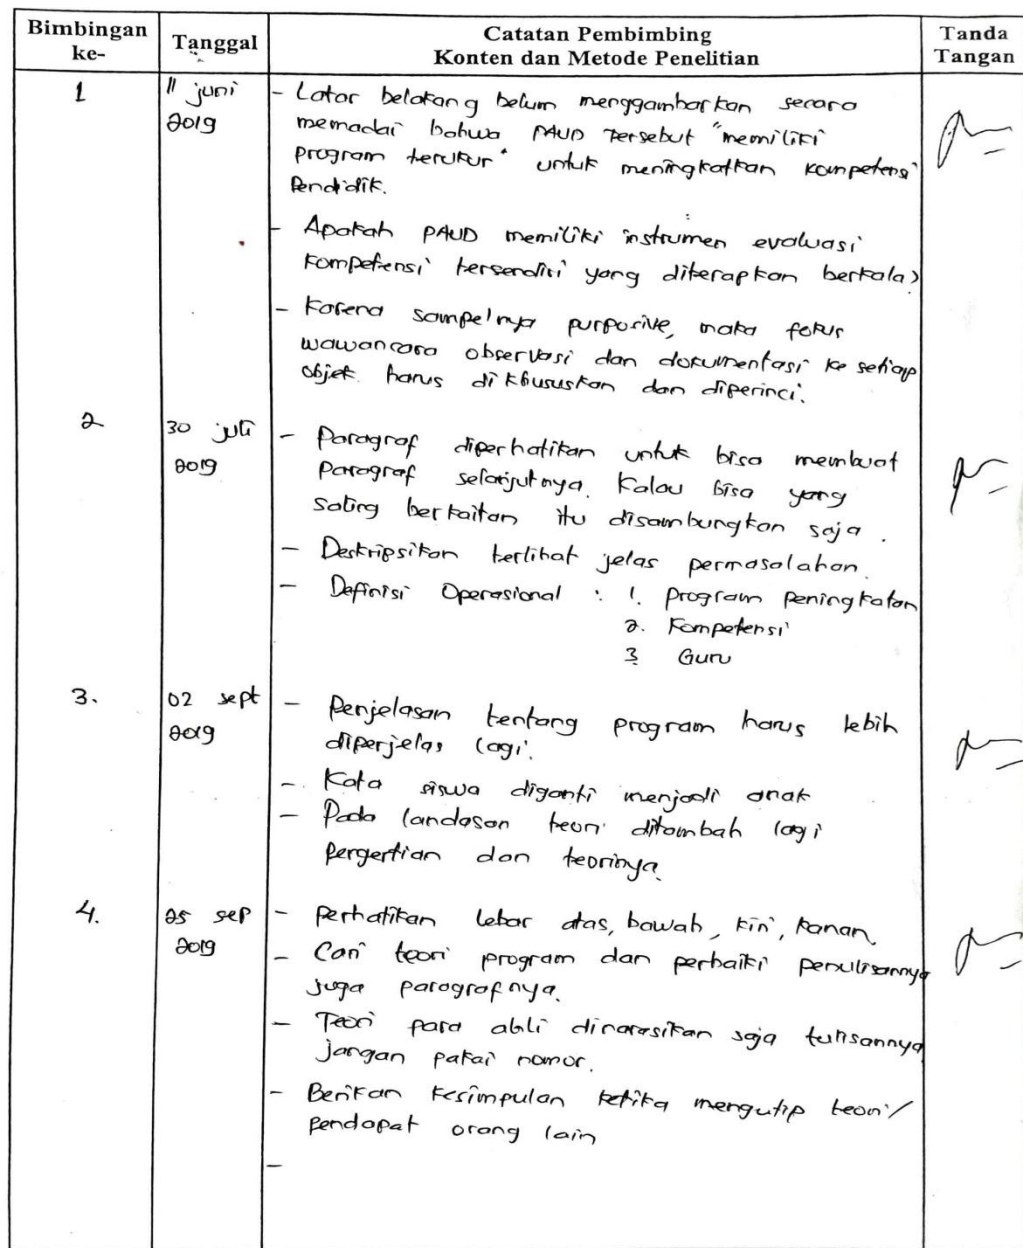 Bimbingan ke-
Tanggal
Catatan Pembimbing
Konten dan Metode Penelitian
Tanda Tangan
1
11 juni
2019
- Latar belakang belum menggambarkan secara
memadai bahwa PAUD tersebut "memiliki
program terukur" untuk meningkatkan kompetensi
Pendidik.
- Apakah PAUD memiliki instrumen evaluasi
kompetensi tersendiri yang diterapkan berkala?
- Karena sampelnya purposive, maka fokus
wawancara observasi dan dokumentasi ke setiap
objek harus di khususkan dan diperinci.
2
30 juli
2019
- Paragraf diperhatikan untuk bisa membuat
Paragraf selanjutnya. Kalau bisa yang
saling berkaitan itu disambungkan saja.
- Deskripsikan terlihat jelas permasalahan.
- Definisi Operasional : 1. program peningkatan
2. Kompetensi
3 Guru
3.
02 sept
2019
- Penjelasan tentang program harus lebih
diperjelas lagi.
- Kata siswa diganti menjadi anak
- Pada landasan teori ditambah lagi
pengertian dan teorinya.
4.
25 sep
2019
- Perhatikan lebar atas, bawah, kiri, kanan.
- Cari teori program dan perbaiki penulisannya
juga paragrafnya.
- Teori para ahli dinarasikan saja tulisannya
jangan pakai nomor.
- Berikan kesimpulan ketika mengutip teori/
pendapat orang lain
-